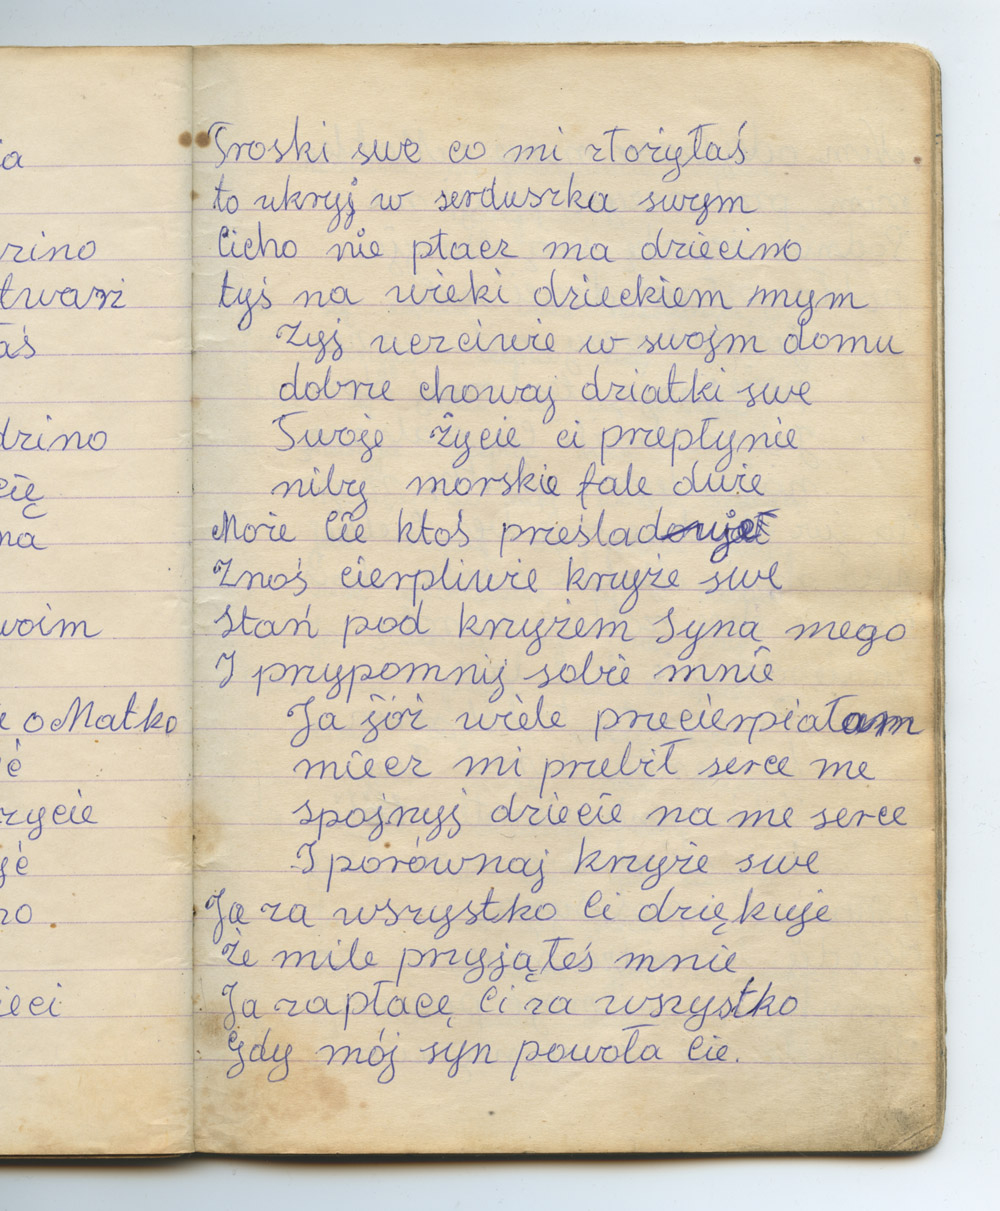 ia
rzino
twarzi
aś
dzino
cię
na
woim
e o Matko
rzycie
ieci
Troski swe co mi złorzyłaś
to ukryj w serduszka swym
Cicho nie płacz ma dziecino
tyś na wieki dzieckiem mym
Żyj uczciwie w swojm domu
dobrze chowaj dziatki swe
Twoje życie ci przepłynie
niby morskie fale duże
Może Cie ktoś prześladował
Znoś cierpliwie krzyże swe
Stań pod krzyżem Syna mego
I przypomnij sobie mnie
Ja jóż wiele przecierpiałam
miecz mi przebił serce me
spojrzyj dziecie na me serce
I porównaj krzyże swe
Ja za wszystko Ci dziękuje
że mile przyjąłeś mnie
Ja zapłacę Ci za wszystko
Gdy mój syn powoła Cie.